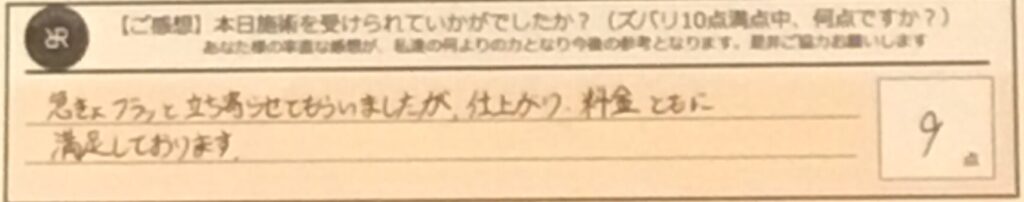 【ご感想】本日施術を受けられていかがでしたか？（ズバリ10点満点中、何点ですか？）
あなた様の率直な感想が、私達の何よりの力となり今後の参考となります。是非ご協力お願いします
急きょフラッと立ち寄らせてもらいましたが、仕上がり・料金ともに
満足しております。
9点